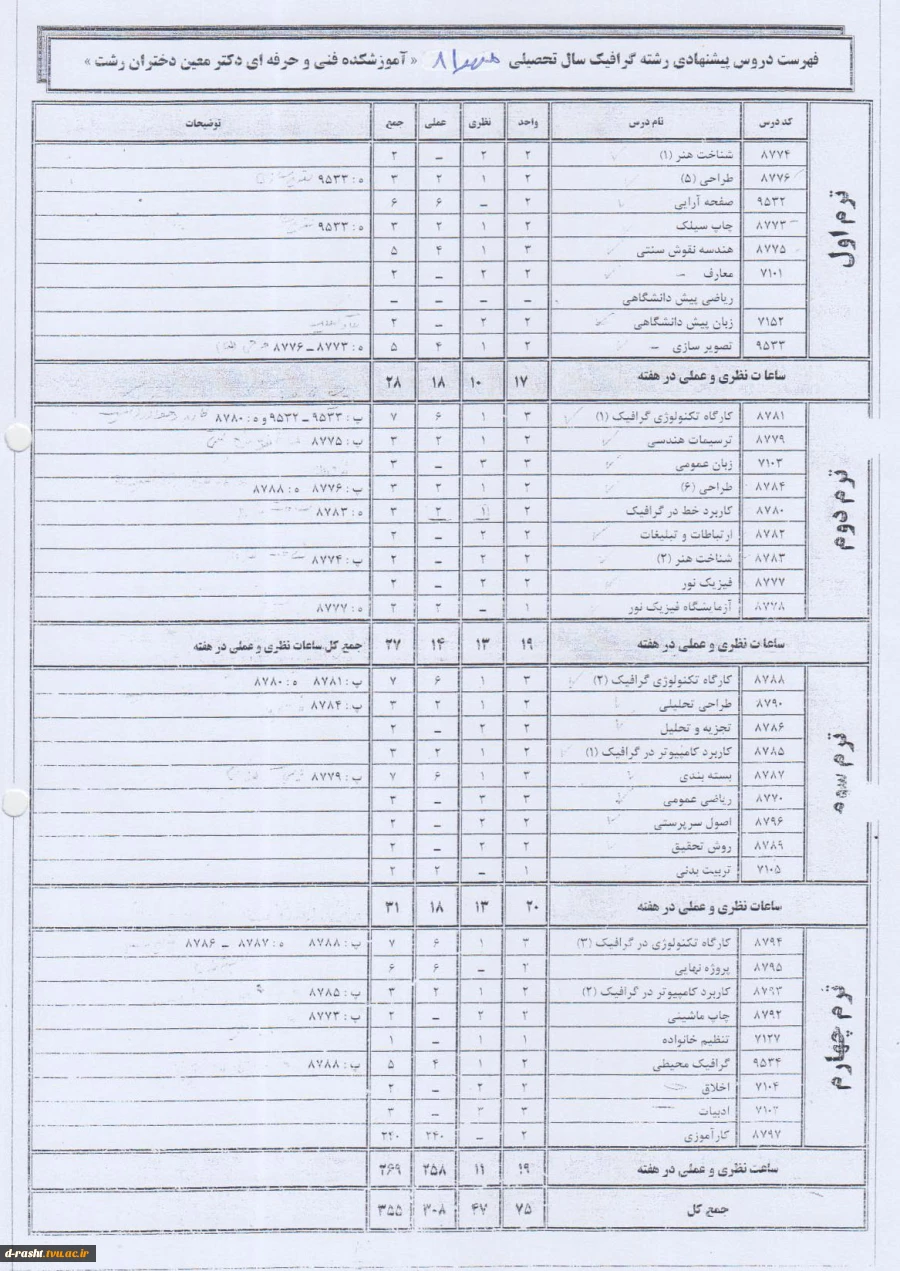 فهرست دروس پیشنهادی رشته گرافیک سال تحصیلی ۸۱ « آموزشکده فنی و حرفه ای دکتر معین دختران رشت »
کد درس نام درس واحد نظری عملی جمع توضیحات
ترم اول
۸۷۷۴ شناخت هنر (۱) ۲ ۲ ـ ۲
۸۷۷۶ طراحی (۵) ۲ ۱ ۲ ۳ ه : ۹۵۳۳
۹۵۳۲ صفحه آرایی ۲ ـ ۶ ۶
۸۷۷۳ چاپ سیلک ۲ ۱ ۲ ۳ ه : ۹۵۳۳
۸۷۷۵ هندسه نقوش سنتی ۳ ۱ ۴ ۵
۷۱۰۱ معارف ۲ ۲ ـ ۲
ریاضی پیش دانشگاهی ـ ـ ـ ـ
۷۱۵۲ زبان پیش دانشگاهی ۲ ۲ ـ ۲
۹۵۳۳ تصویر سازی ۲ ۱ ۴ ۵ ه : ۸۷۷۳ ـ ۸۷۷۶
ساعات نظری و عملی در هفته ۱۷ ۱۰ ۱۸ ۲۸
ترم دوم
۸۷۸۱ کارگاه تکنولوژی گرافیک (۱) ۳ ۱ ۶ ۷ پ : ۹۵۳۳ ـ ۹۵۳۲ و ه : ۸۷۸۰
۸۷۷۹ ترسیمات هندسی ۲ ۱ ۲ ۳ پ : ۸۷۷۵
۷۱۰۳ زبان عمومی ۳ ۳ ـ ۳
۸۷۸۴ طراحی (۶) ۲ ۱ ۲ ۳ پ : ۸۷۷۶ ه : ۸۷۸۸
۸۷۸۰ کاربرد خط در گرافیک ۲ ۱ ۲ ۳ ه : ۸۷۸۳
۸۷۸۲ ارتباطات و تبلیغات ۲ ۲ ـ ۲
۸۷۸۳ شناخت هنر (۲) ۲ ۲ ـ ۲ پ : ۸۷۷۴
۸۷۷۷ فیزیک نور ۲ ۲ ـ ۲
۸۷۷۸ آزمایشگاه فیزیک نور ۱ ـ ۲ ۲ ه : ۸۷۷۷
ساعات نظری و عملی در هفته ۱۹ ۱۳ ۱۴ ۲۷ جمع کل ساعات نظری و عملی در هفته
ترم سوم
۸۷۸۸ کارگاه تکنولوژی گرافیک (۲) ۳ ۱ ۶ ۷ پ : ۸۷۸۱ ه : ۸۷۸۰
۸۷۹۰ طراحی تحلیلی ۲ ۱ ۲ ۳ پ : ۸۷۸۴
۸۷۸۶ تجزیه و تحلیل ۲ ۲ ـ ۲
۸۷۸۵ کاربرد کامپیوتر در گرافیک (۱) ۲ ۱ ۲ ۳
۸۷۸۷ بسته بندی ۳ ۱ ۶ ۷ پ : ۸۷۷۹
۸۷۷۰ ریاضی عمومی ۳ ۳ ـ ۳
۸۷۹۶ اصول سرپرستی ۲ ۲ ـ ۲
۸۷۸۹ روش تحقیق ۲ ۲ ـ ۲
۷۱۰۵ تربیت بدنی ۱ ـ ۲ ۲
ساعات نظری و عملی در هفته ۲۰ ۱۳ ۱۸ ۳۱
ترم چهارم
۸۷۹۴ کارگاه تکنولوژی در گرافیک (۳) ۳ ۱ ۶ ۷ پ : ۸۷۸۸ ه : ۸۷۸۷ ـ ۸۷۸۶
۸۷۹۵ پروژه نهایی ۲ ـ ۶ ۶
۸۷۹۳ کاربرد کامپیوتر در گرافیک (۲) ۲ ۱ ۲ ۳ پ : ۸۷۸۵
۸۷۹۲ چاپ ماشینی ۲ ۲ ـ ۲ پ : ۸۷۷۳
۷۱۲۷ تنظیم خانواده ۱ ۱ ـ ۱
۹۵۳۴ گرافیک محیطی ۲ ۱ ۴ ۵ پ : ۸۷۸۸
۷۱۰۴ اخلاق ۲ ۲ ـ ۲
۷۱۰۲ ادبیات ۳ ۳ ـ ۳
۸۷۹۷ کارآموزی ۲ ـ ۲۴۰ ۲۴۰
ساعت نظری و عملی در هفته ۱۹ ۱۱ ۲۵۸ ۲۶۹
جمع کل ۷۵ ۴۷ ۳۰۸ ۳۵۵
d-rasht.tvu.ac.ir